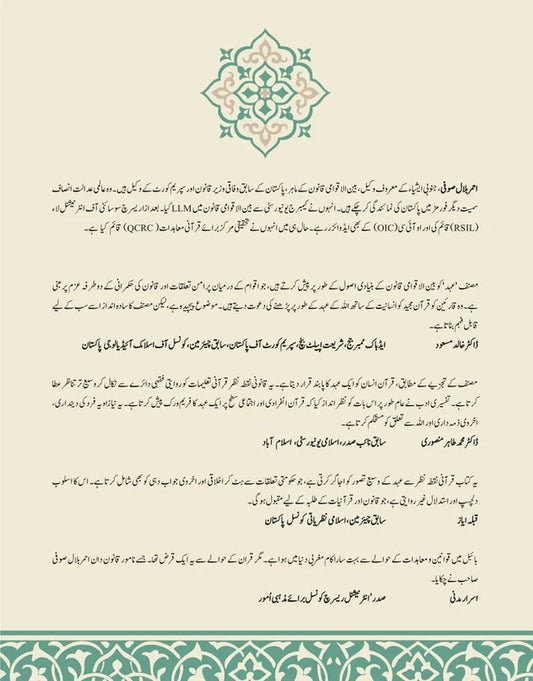 احمر بلال صوفی، جنوبی ایشیاء کے معروف وکیل، بین الاقوامی قانون کے ماہر، پاکستان کے سابق وفاقی وزیر قانون اور سپریم کورٹ کے وکیل ہیں۔ وہ عالمی عدالت انصاف
سمیت دیگر فورمز میں پاکستان کی نمائندگی کر چکے ہیں۔ انہوں نے کیمبرج یونیورسٹی سے بین الاقوامی قانون میں LLM کیا۔ بعد ازاں ریسرچ سوسائٹی آف انٹرنیشنل لاء
(RSIL) قائم کی اور او آئی سی (OIC) کے بھی ایڈوائزر رہے۔ حال ہی میں انہوں نے تحقیقی مرکز برائے قرآنی معاہدات (QCRC) قائم کیا ہے۔
مصنف 'عہد' کو بین الاقوامی قانون کے بنیادی اصول کے طور پر پیش کرتے ہیں، جو اقوام کے درمیان پرامن تعلقات اور قانون کی حکمرانی کے دو طرفہ عزم پر مبنی
ہے۔ وہ قارئین کو قرآن مجید کو انسانیت کے ساتھ اللہ کے عہد کے طور پر پڑھنے کی دعوت دیتے ہیں۔ موضوع پیچیدہ ہے، لیکن مصنف کا سادہ انداز اسے سب کے لیے
قابل فہم بناتا ہے۔
ڈاکٹر خالد مسعود ایڈہاک ممبر جج، شریعت اپیلٹ بنچ، سپریم کورٹ آف پاکستان، سابق چیئرمین، کونسل آف اسلامک آئیڈیالوجی پاکستان
مصنف کے تجزیے کے مطابق، قرآن انسان کو ایک عہد کا پابند قرار دیتا ہے۔ یہ قانونی نقطہ نظر قرآنی تعلیمات کو روایتی فقہی دائرے سے نکال کر وسیع تر تناظر عطا
کرتا ہے۔ تفسیری ادب نے عام طور پر اس بات کو نظر انداز کیا کہ قرآن انفرادی اور اجتماعی سطح پر ایک عہد کا فریم ورک پیش کرتا ہے۔ یہ نیا زاویہ فرد کی دینداری،
اخروی ذمہ داری اور اللہ سے تعلق کو مستحکم کرتا ہے۔
ڈاکٹر محمد طاہر منصوری سابق نائب صدر، اسلامی یونیورسٹی، اسلام آباد
یہ کتاب قرآنی نقطہ نظر سے عہد کے وسیع تصور کو اجاگر کرتی ہے، جو حکومتی تعلقات سے ہٹ کر اخلاقی اور اخروی جواب دہی کو بھی شامل کرتا ہے۔ اس کا اسلوب
دلچسپ اور استدلال غیر روایتی ہے، جو قانون اور قرآنیات کے طلبہ کے لیے مقبول ہو گی۔
قبلہ ایاز سابق چیئرمین، اسلامی نظریاتی کونسل پاکستان
بائبل میں قوانین و معاہدات کے حوالے سے بہت سارا کام مغربی دنیا میں ہوا ہے۔ مگر قرآن کے حوالے سے یہ ایک قرض تھا۔ جسے نامور قانون دان احمر بلال صوفی
صاحب نے چکایا۔
اسرار مدنی صدر 'انٹرنیشنل ریسرچ کونسل برائے مذہبی اُمور